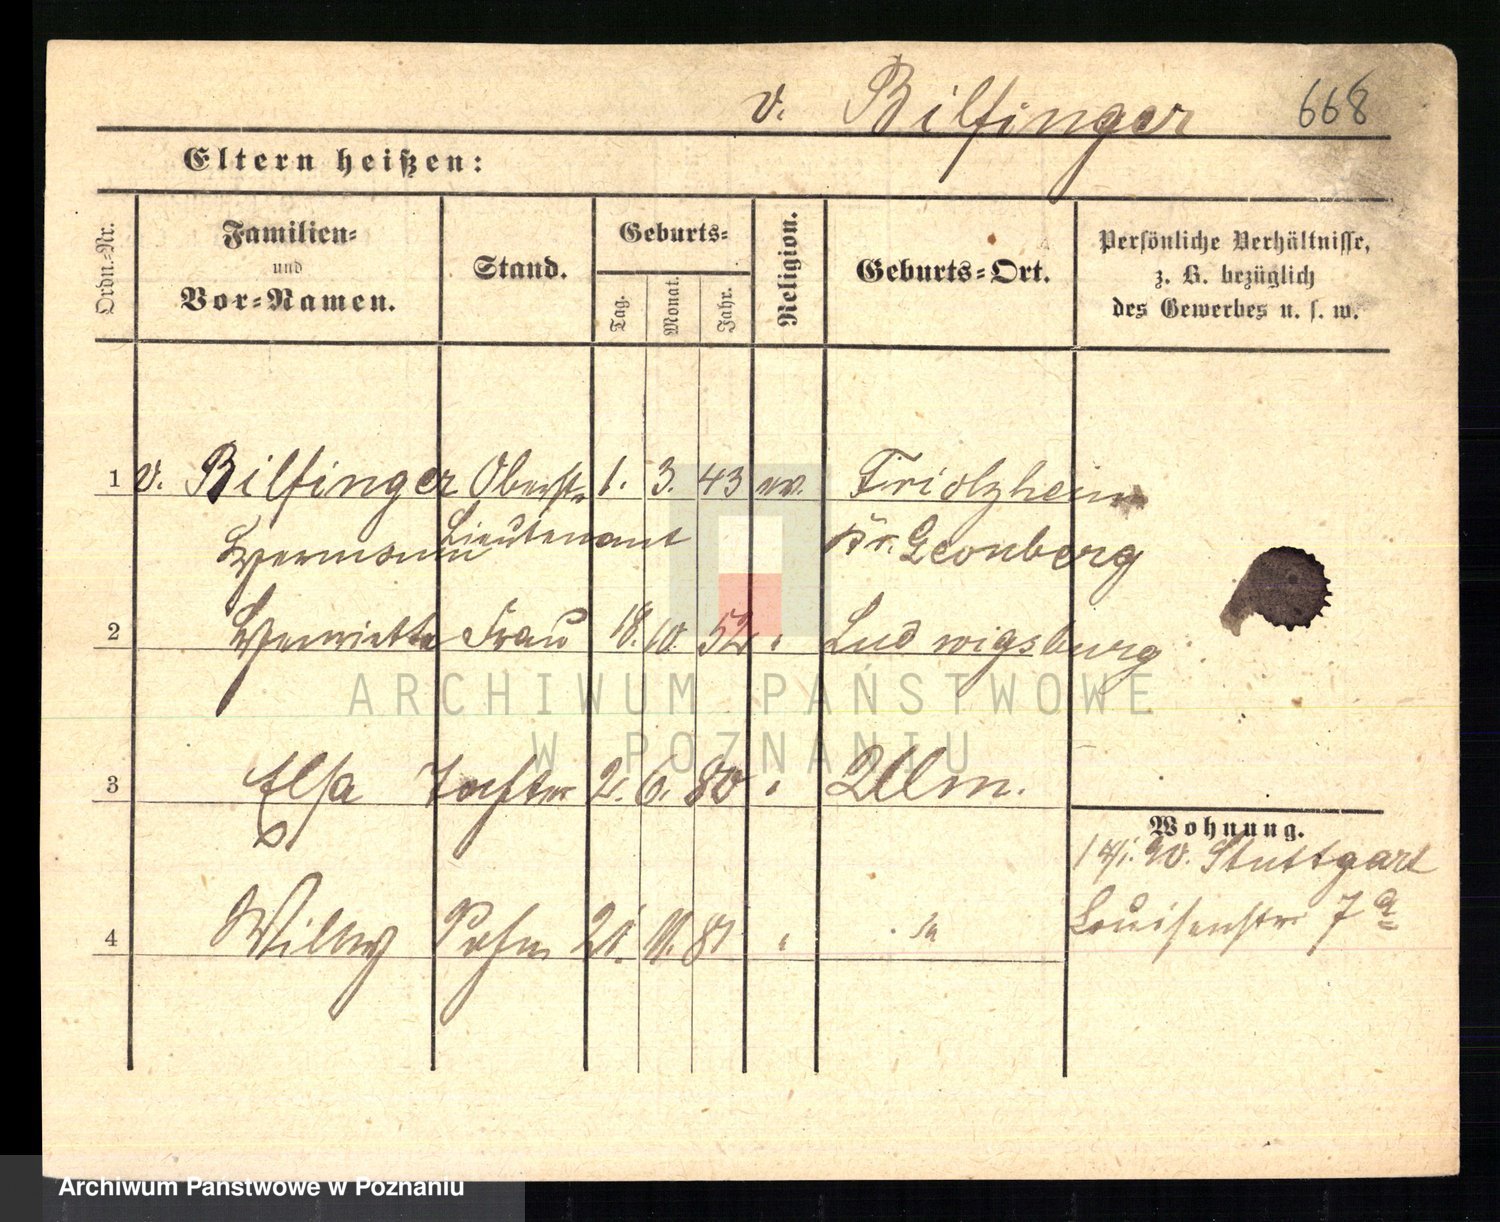 v. Bilfinger 668
Eltern heißen:
Ordn.-Nr.
Familien-
und
Vor-Namen.
Stand.
Geburts-
Tag.
Monat.
Jahr.
Religion.
Geburts-Ort.
Persönliche Verhältnisse,
z. B. bezüglich
des Gewerbes u. s. w.
1 v. Bilfinger Oberst- 1. 3. 43 ev. Friolzheim
Hermann Lieutenant Kr. Leonberg
2 Henriette Frau 18. 10. 52 " Ludwigsburg
ARCHIWUM PAŃSTWOWE
W POZNANIU
3 Elsa Tochter 2. 6. 80 " Ulm.
Wohnung.
1 4/. 90. Stuttgart
4 Willy Sohn 21. 11. 81 "
Louisenstr 7a
Archiwum Państwowe w Poznaniu